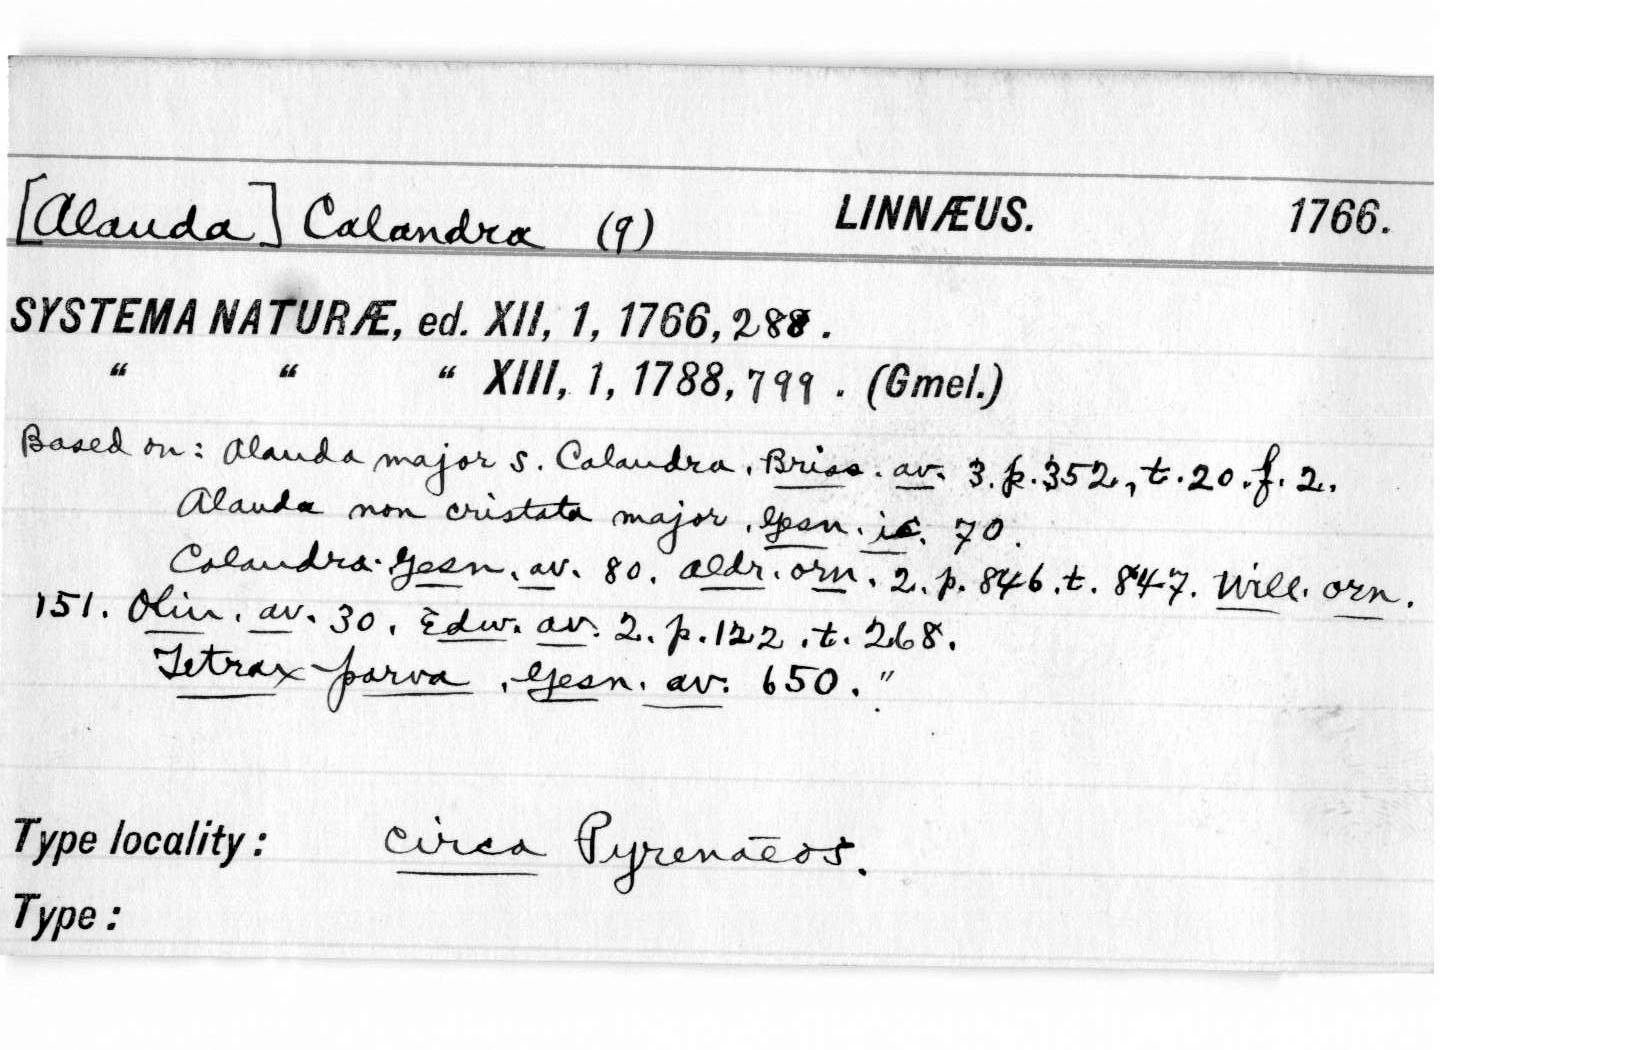 [Alauda] Calandra (9) LINNÆUS. 1766.
SYSTEMA NATURÆ, ed. XII, 1, 1766, 288.
“ “ “ XIII, 1, 1788, 799. (Gmel.)
Based on: Alauda major s. Calandra, Briss. av. 3. p. 352, t. 20. f. 2.
Alauda non cristata major, Gesn. ic. 70.
Calandra. Gesn. av. 80. Aldr. orn. 2. p. 846. t. 847. Will. orn.
151. Olin. av. 30. Edw. av. 2. p. 122. t. 268.
Tetrax parva, Gesn. av. 650."
Type locality: circa Pyrenaeos.
Type: